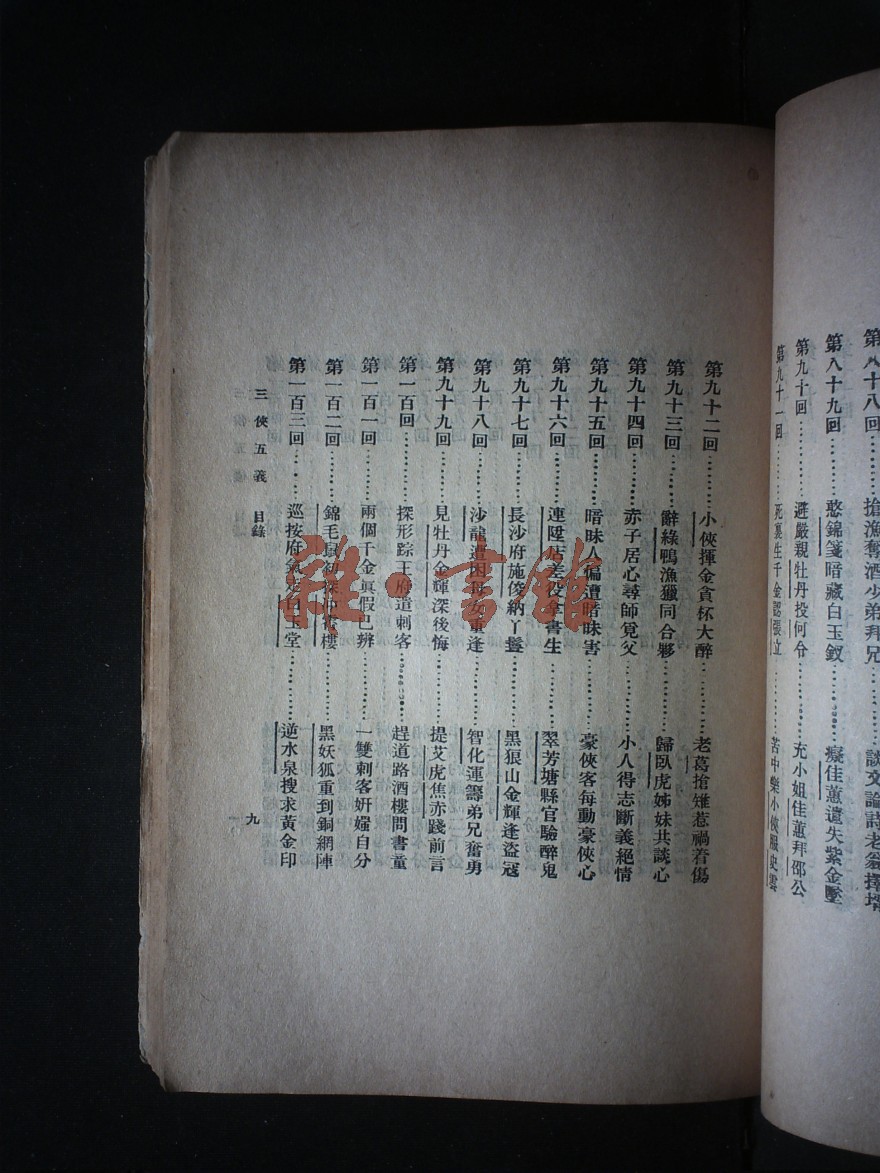 第八十八回⋯⋯搶漁奪酒少弟拜兄⋯⋯談文論詩老翁擇壻
第八十九回⋯⋯憨錦箋暗藏白玉釵⋯⋯癡佳蕙遺失紫金墜
第九十回⋯⋯避嚴親牡丹投何令⋯⋯充小姐佳蕙拜邵公
第九十一回⋯⋯死裏生千金認張立⋯⋯苦中樂小俠服史雲
第九十二回⋯⋯小俠揮金貪杯大醉⋯⋯老葛搶雉惹禍着傷
第九十三回⋯⋯辭綠鴨漁獵同合夥⋯⋯歸臥虎姊妹共談心
第九十四回⋯⋯赤子居心尋師覓父⋯⋯小人得志斷義絕情
第九十五回⋯⋯暗昧人偏遭暗昧害⋯⋯豪俠客每動豪俠心
第九十六回⋯⋯連陞店差役拿書生⋯⋯翠芳塘縣官驗醉鬼
第九十七回⋯⋯長沙府施俊納丫鬟⋯⋯黑狼山金輝逢盜寇
第九十八回⋯⋯沙龍遭困母女重逢⋯⋯智化運籌弟兄奮勇
第九十九回⋯⋯見牡丹金輝深後悔⋯⋯提艾虎焦赤踐前言
第一百回⋯⋯探形踪王府遣刺客⋯⋯趕道路酒樓問書童
第一百一回⋯⋯兩個千金眞假已辨⋯⋯一雙刺客姸媸自分
第一百二回⋯⋯錦毛鼠初探沖霄樓⋯⋯黑妖狐重到銅網陣
第一百三回⋯⋯巡按府氣走白玉堂⋯⋯逆水泉搜求黃金印
三俠五義 目錄
九
雜·書館